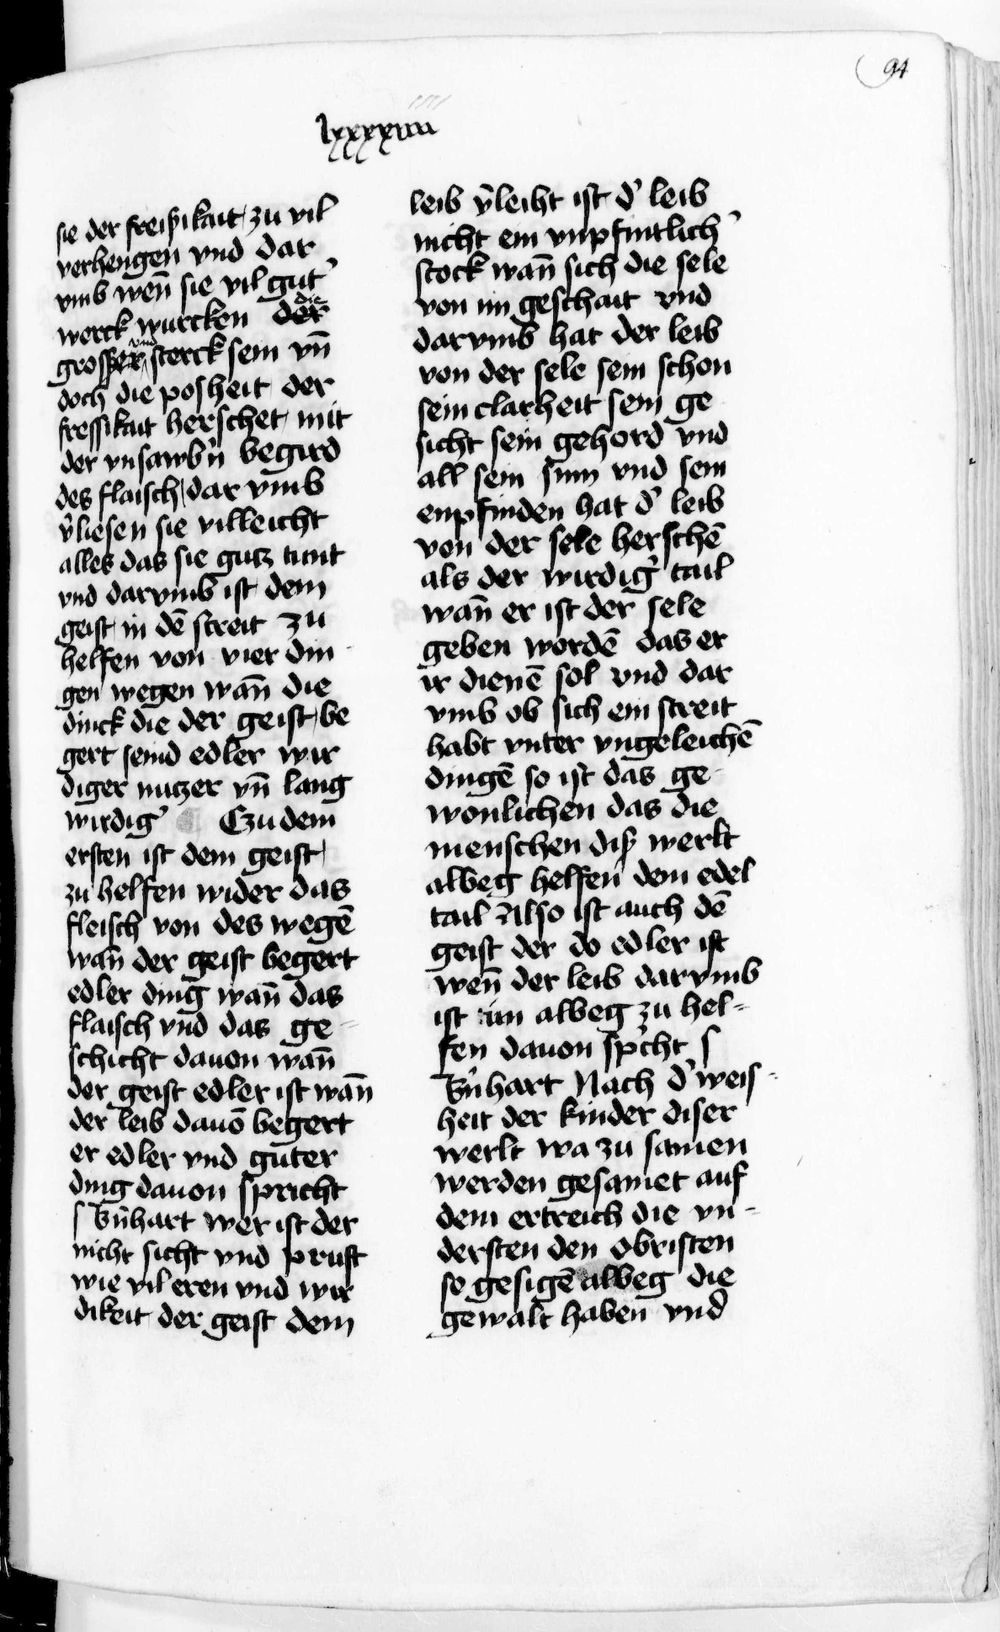 94
lxxxxiiii
sie der freissikait zu vil
verhengen vnd dar
vmb wen̄ sie vil gut'
werck wurcken der die
grosser vnd sterck sein vn̄
doch die posheit der
fressikait herschet mit
der vnsawb'n begird
des flaisch dar vmb
v'liesen sie villeicht
alles das sie gutz tunt
vnd darvmb ist dem
geist in dē streit zu
helfen von vier din
gen wegen wan̄ die
dinck die der geist be
gert seind edler wir
diger nutzer vn̄ lang
wirdig' Czu dem
ersten ist dem geist
zu helfen wider das
fleisch von des wegē
wan̄ der geist begert
edler ding wan̄ das
flaisch vnd das ge-
schicht dauon wan̄
der geist edler ist wan̄
der leib dauō begert
er edler vnd guter
ding dauon spricht
s Bn̄hart wer ist der
nicht sicht vnd pruft
wie vil eren vnd wir
dikeit der geist dem
leib v'leiht ist d' leib
nicht ein vnpfintlich'
stock wan̄ sich die sele
von im geschait vnd
darvmb hat der leib
von der sele sein schon
sein clarheit sein ge
sicht sein gehord vnd
all sein sinn vnd sein
enpfinden hat d' leib
von der sele herschē
als der wirdig' tail
wan̄ er ist der sele
geben wordē das er
ir dienē sol vnd dar
vmb ob sich ein streit
habt vnter vngeleichē
dingē so ist das ge-
wonlichen das die
menschen diss werlt
alweg helfen dem edel
tail Also ist auch dē
geist der do edler ist
wen̄ der leib darvmb
ist im alweg zu hel-
fen dauon sp'cht s
Bn̄hart Nach d' weis-
heit der kinder diser
werlt wa zu samen
werden gesamet auf
dem ertreich die vn-
dersten den obristen
so gesigē alweg die
gewalt haben vnd